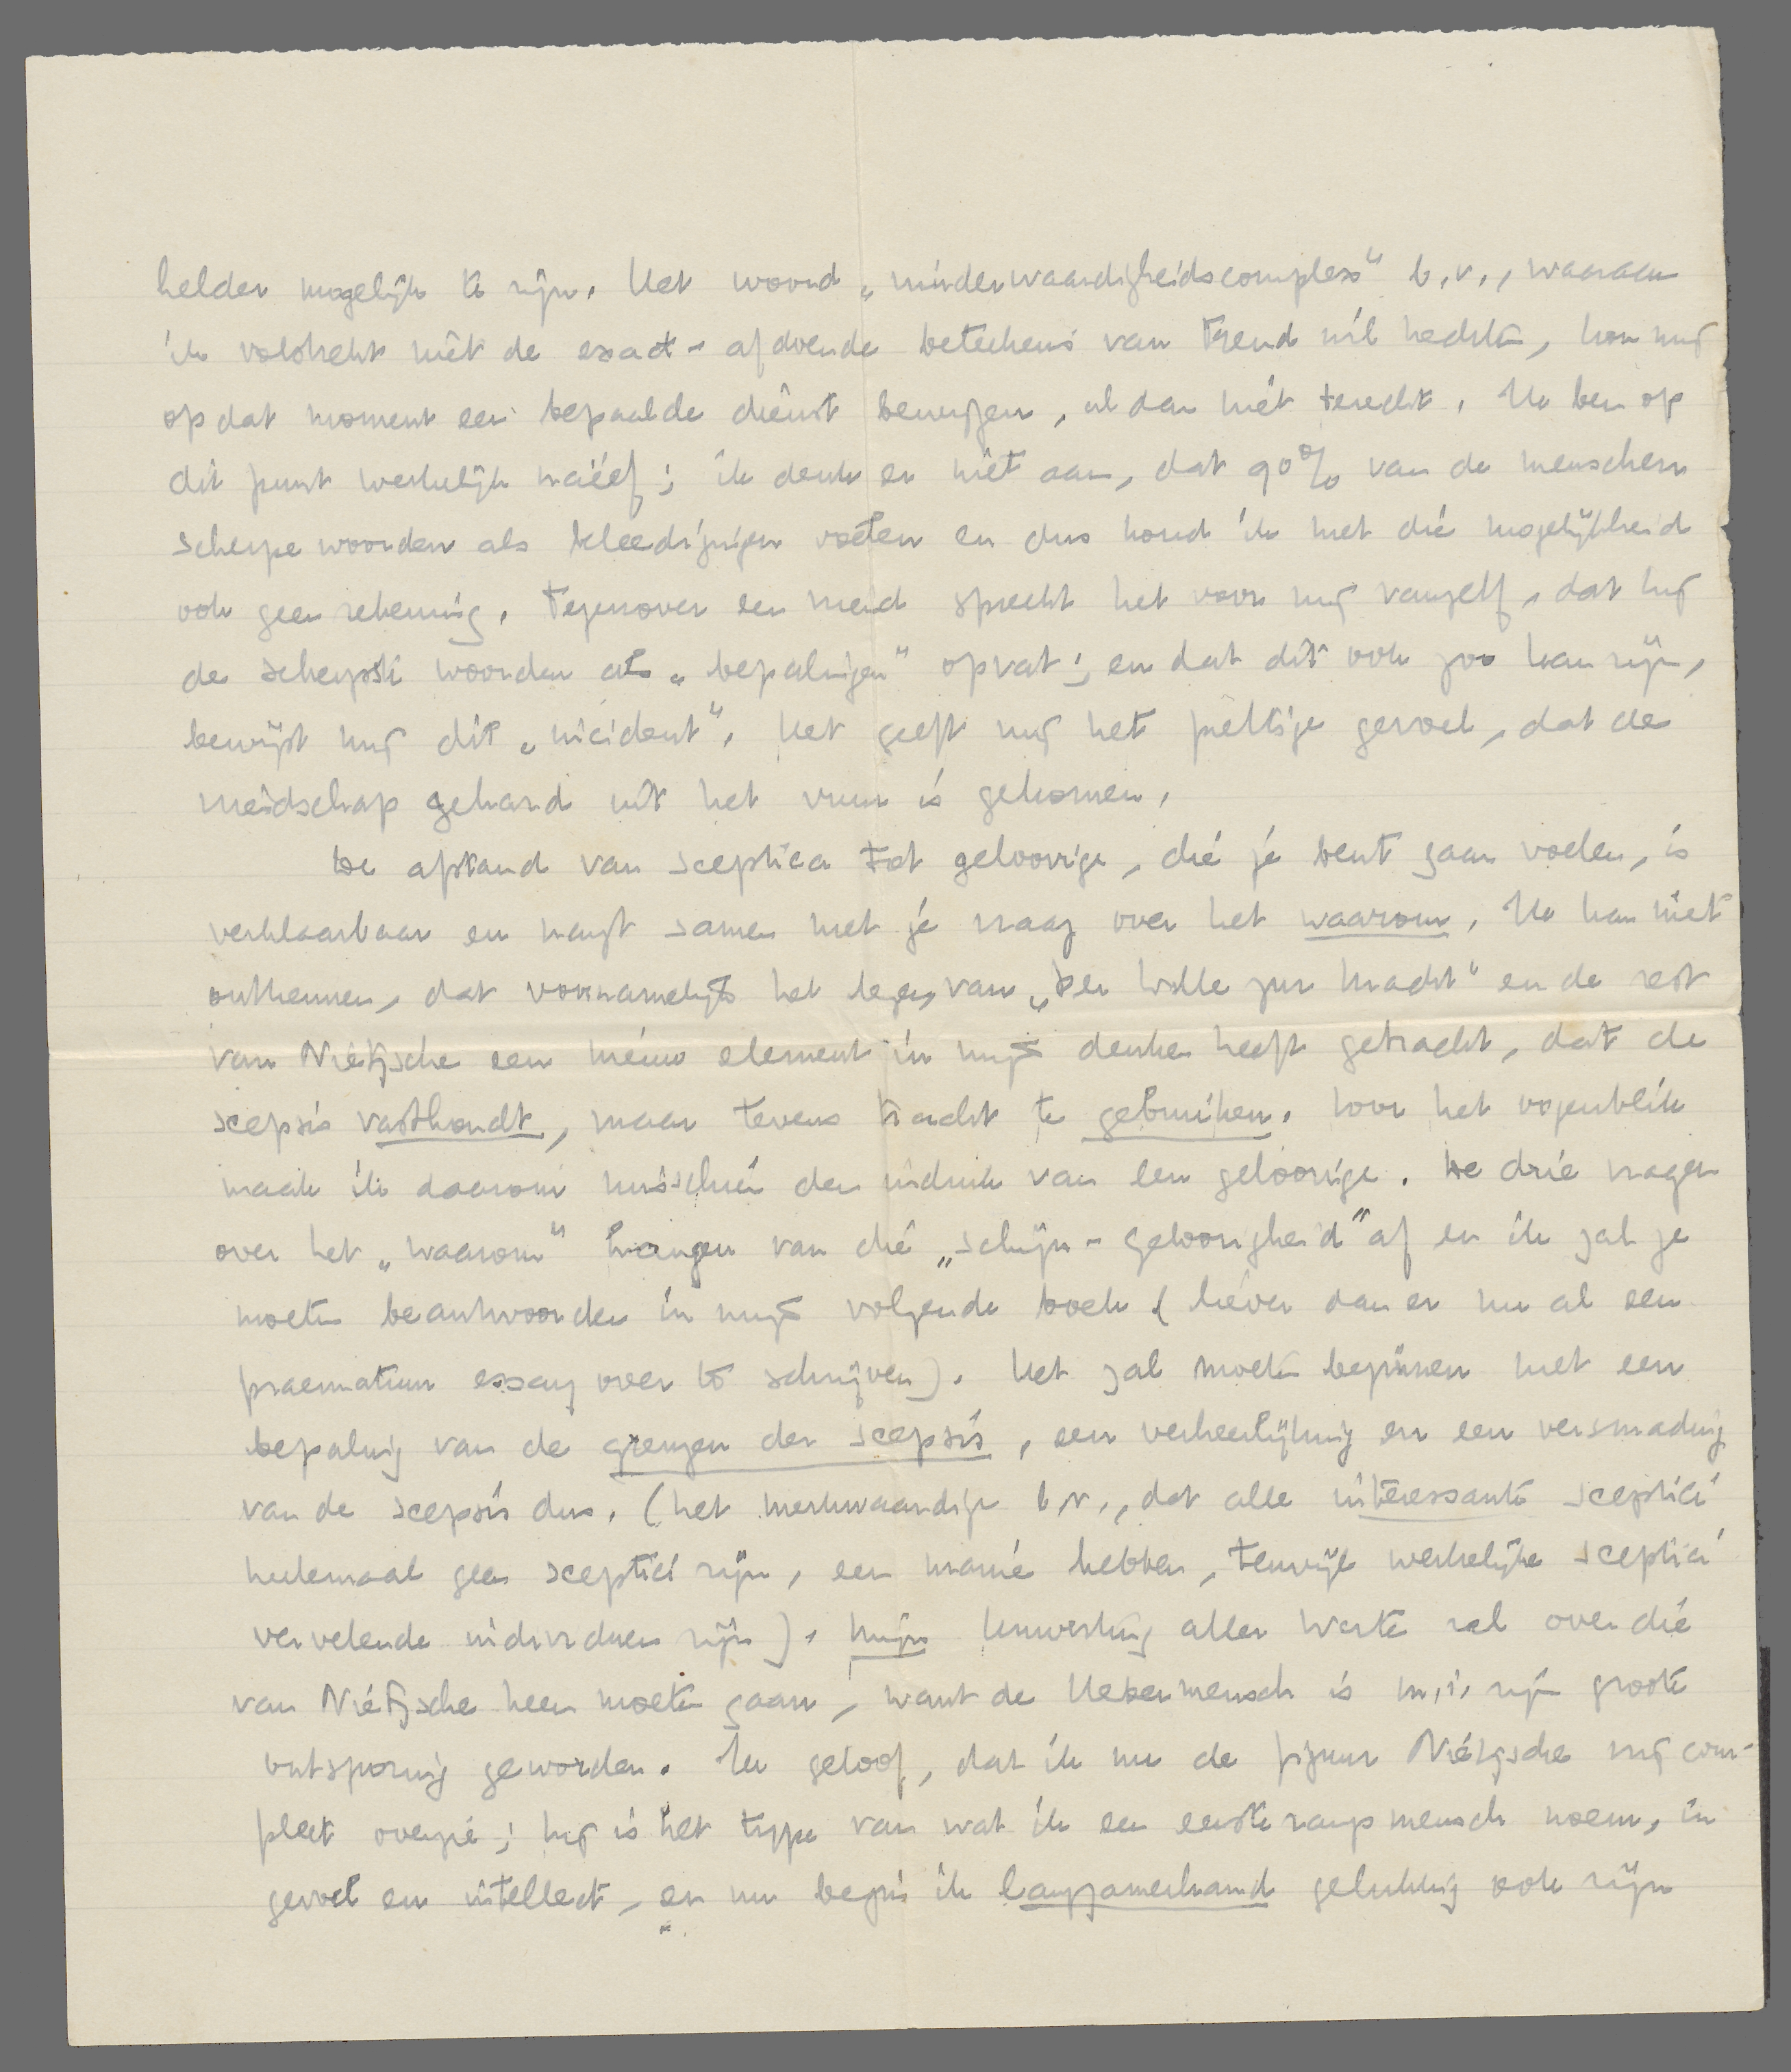 helder mogelijk te zijn. Het woord „minderwaardigheidscomplex" b.v., waaraan
ik volstrekt niet de exact-afdoende beteekenis van Freud wil hechten, kon mij
op dat moment een bepaalde dienst bewijzen, al dan niet terecht. Ik ben op
dit punt werkelijk naïef; ik denk er niet aan, dat 90% van de menschen
scherpe woorden als beleedigingen voelen en dus houd ik met die mogelijkheid
ook geen rekening. Tegenover een vriend spreekt het voor mij vanzelf, dat hij
de scherpste woorden als „bepalingen" opvat; en dat dit ook zoo kan zijn,
bewijst mij dit „incident". Het geeft mij het prettige gevoel, dat de
vriendschap gehard uit het vuur is gekomen.
De afstand van scepticus tot geloovige, die je bent gaan voelen, is
verklaarbaar en hangt samen met je vraag over het waarom. Ik kan niet
ontkennen, dat voornamelijk het lezen van „Der Wille zur Macht" en de rest
van Nietzsche een nieuw element in mijn denken heeft gebracht, dat de
scepsis vasthoudt, maar tevens tracht te gebruiken. Voor het oogenblik
maak ik daarom misschien den indruk van een geloovige. De drie vragen
over het „waarom" hangen van die „schijn-geloovigheid" af en ik zal ze
moeten beantwoorden in mijn volgende boek (liever dan er nu al een
praematuur essay over te schrijven). Het zal moeten beginnen met een
bepaling van de grenzen der scepsis, een verheerlijking en een versmading
van de scepsis dus. (het merkwaardige b.v., dat alle interessante sceptici
heelemaal geen sceptici zijn, een manie hebben, terwijl werkelijke sceptici
vervelende individuen zijn). Mijn Umwertung aller Werte zal over die
van Nietzsche heen moeten gaan, want de Uebermensch is m.i. zijn groote
ontsporing geworden. Ik geloof, dat ik nu de figuur Nietzsche vrij com-
pleet overzie; hij is het type van wat ik een eersterangsmensch noem, in
gevoel en intellect, en nu begin ik langzamerhand gelukkig ook zijn